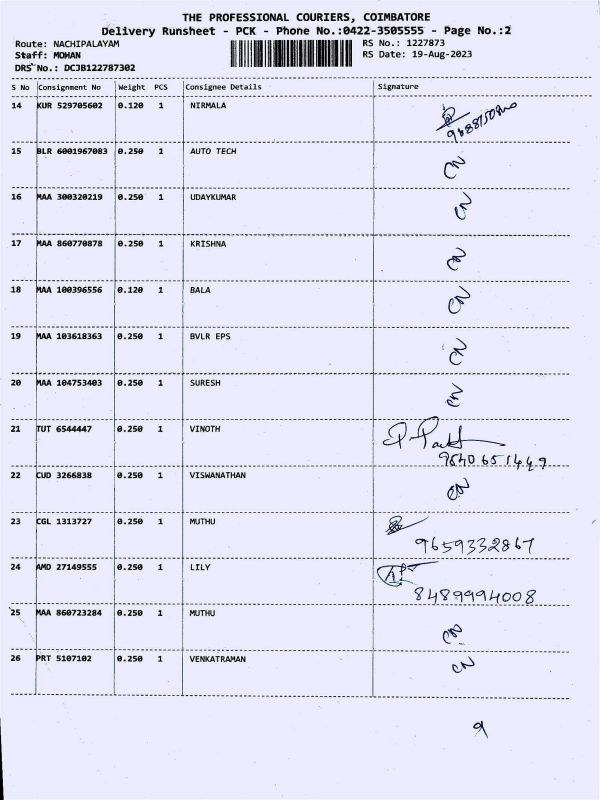 THE PROFESSIONAL COURIERS, COIMBATORE
Delivery Runsheet - PCK - Phone No.:0422-3505555 - Page No.:2
Route: NACHIPALAYAM RS No.: 1227873
Staff: MOHAN RS Date: 19-Aug-2023
DRS No.: DCJB122787302
S No Consignment No Weight PCS Consignee Details Signature
14 KUR 529705602 0.120 1 NIRMALA
15 BLR 6001967083 0.250 1 AUTO TECH CN
16 MAA 300320219 0.250 1 UDAYKUMAR CN
17 MAA 860770878 0.250 1 KRISHNA CN
18 MAA 100396556 0.120 1 BALA CN
19 MAA 103618363 0.250 1 BVLR EPS CN
20 MAA 104753403 0.250 1 SURESH CN
21 TUT 6544447 0.250 1 VINOTH
9840651449
22 CUD 3266838 0.250 1 VISWANATHAN CN
23 CGL 1313727 0.250 1 MUTHU
9659332867
24 AMD 27149555 0.250 1 LILY
8489994008
25 MAA 860723284 0.250 1 MUTHU CN
26 PRT 5107102 0.250 1 VENKATRAMAN CN
9